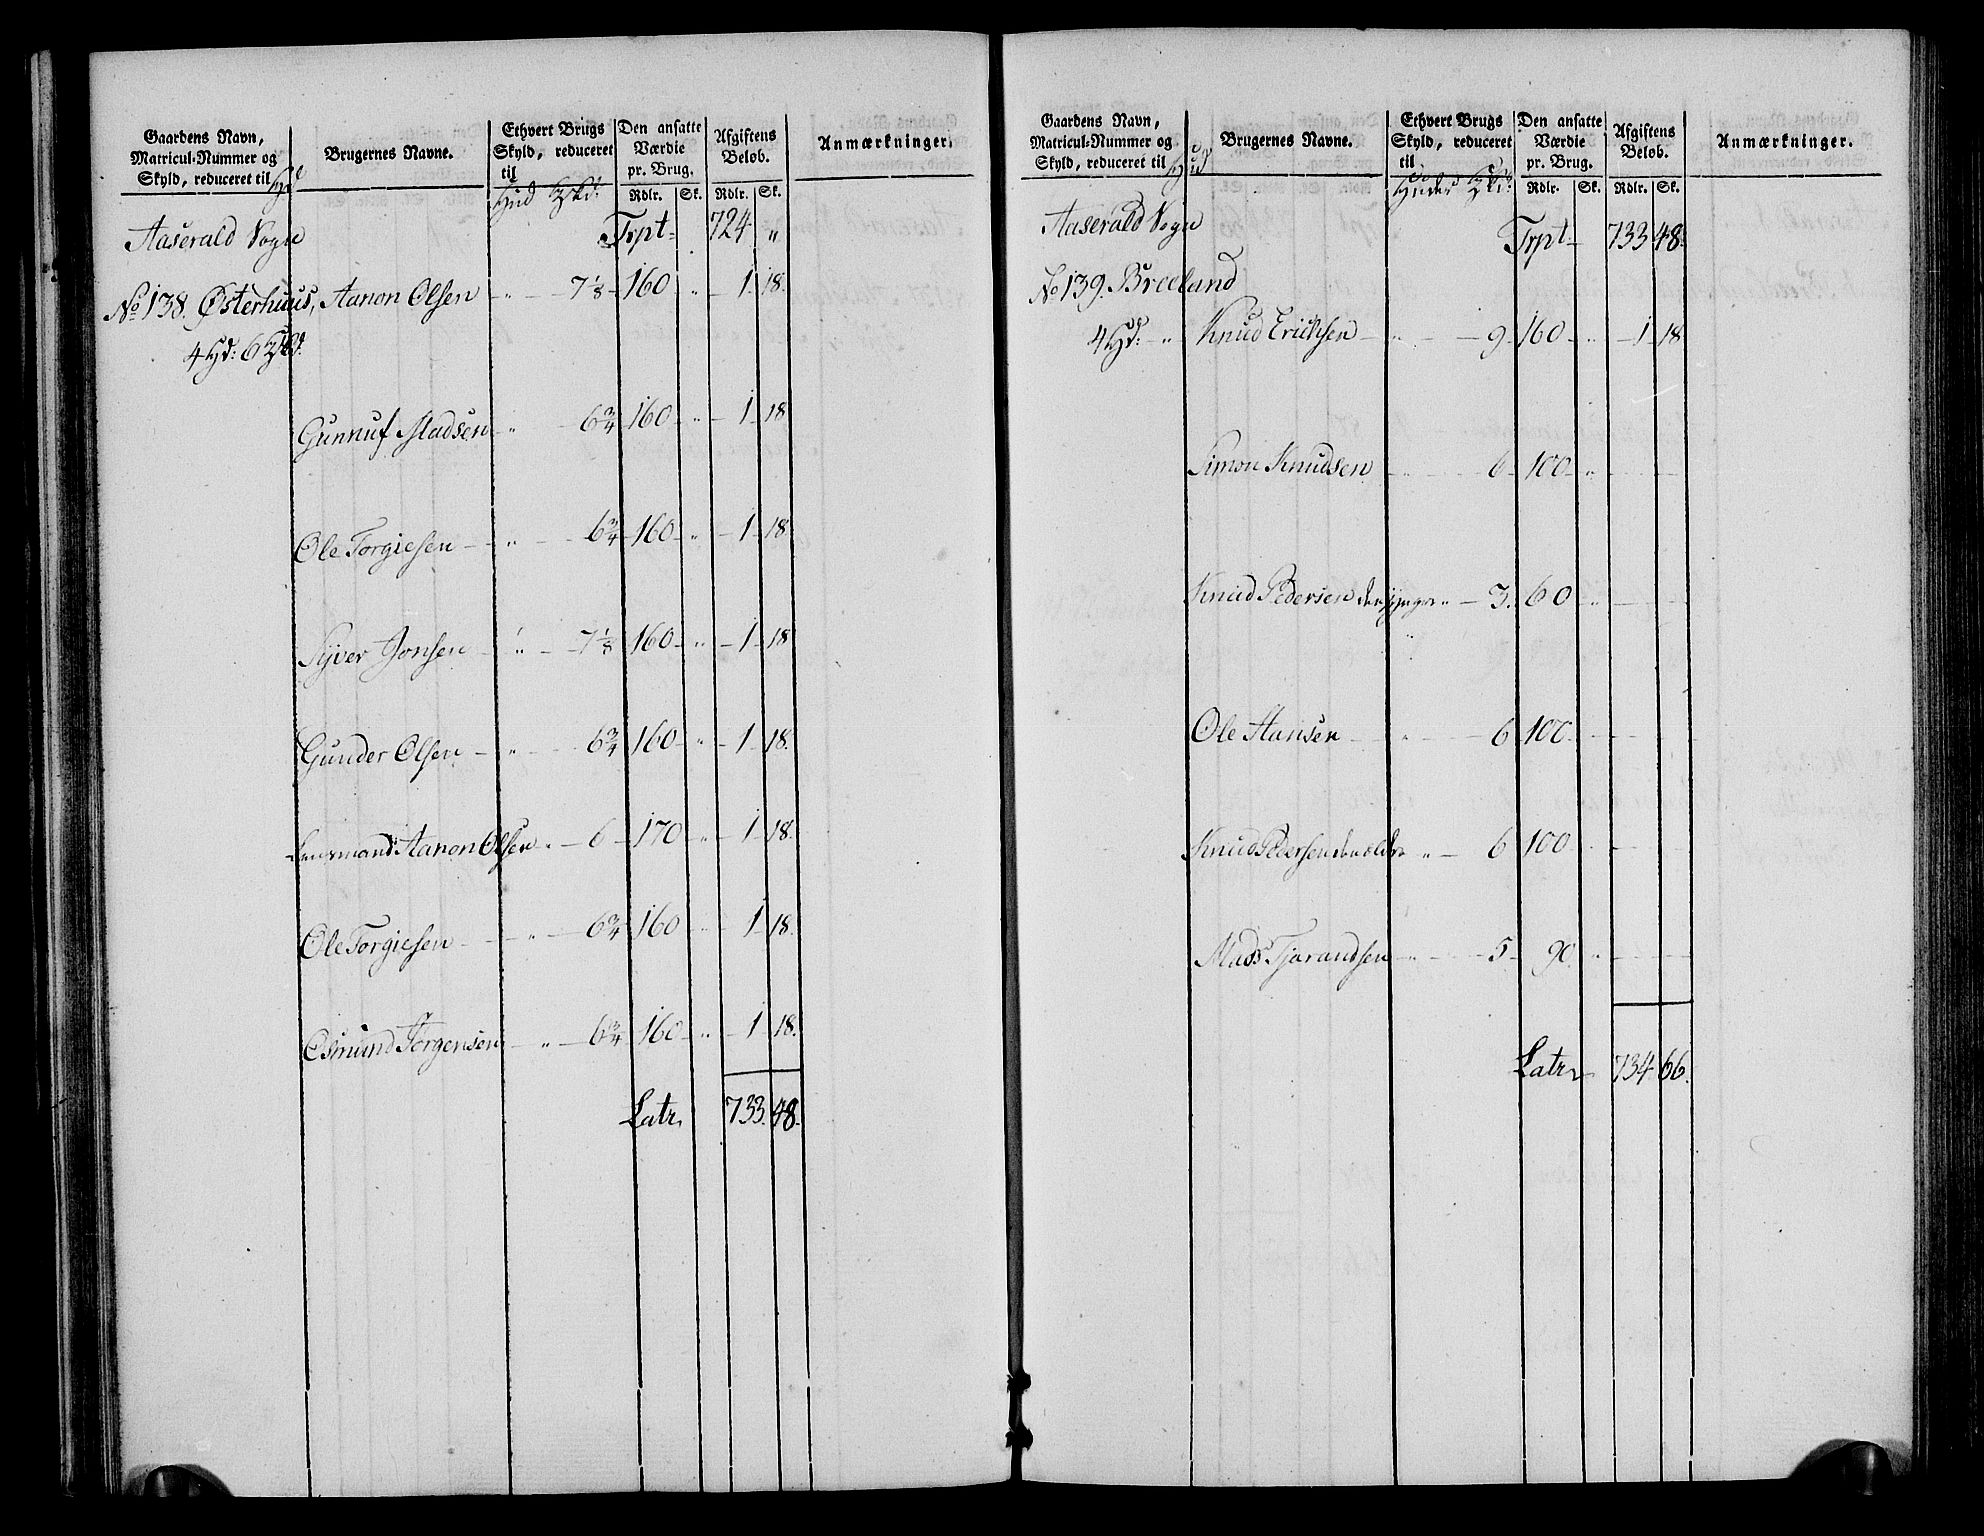 Gaardens Navn, Matricul-Nummer og Skyld, reduceret til Hd
Brugernes Navne.
Ethvert Brugs Skyld, reduceret til Hud
Den ansatte Værdie pr. Brug. Rdlr. Sk.
Afgiftens Beløb. Rdlr. Sk.
Anmærkninger.
Aaserald Sogn Trpt 724 "
No 138. Østerhuus, Aanon Olsen " 7 1/8 160 " 1 18.
4 Hd: 6
Gunnuf Madsen " 6 3/4 160 " 1 18
Ole Torgiesen " 6 3/4 160 " 1 18.
Syver Jonsen " 7 1/8 160 " 1 18
Gunder Olsen " 6 3/4 160 " 1 18.
Lensmand Aanon Olsen " 6 170 " 1 18.
Ole Torgiesen " 6 3/4 160 " 1 18.
Osmund Torgensen " 6 3/4 160 " 1 18.
Latr 733. 48.
Gaardens Navn, Matricul-Nummer og Skyld, reduceret til Hud
Brugernes Navne.
Ethvert Brugs Skyld, reduceret til Huder
Den ansatte Værdie pr. Brug. Rdlr. Sk.
Afgiftens Beløb. Rdlr. Sk.
Anmærkninger.
Aaserald Sogn Trpt 733 48.
No 139. Breeland
4 Hd: " Knud Erichsen " 9 160 " 1 18
Simon Knudsen " 6 100 "
Knud Pedersen den yngre " 3. 60 "
Ole Hansen " 6 100
Knud Pedersen den older " 6 100
Mads Tjarandsen " 5 90 "
Latr 734 66.